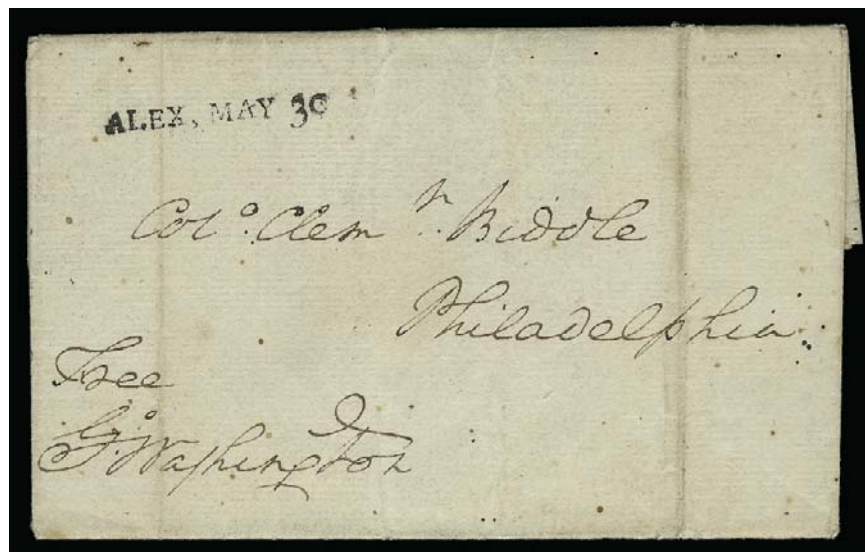 ALEX, MAY 30
Colo. Clem n. Biddle
Philadelphia.
Free
Go. Washington